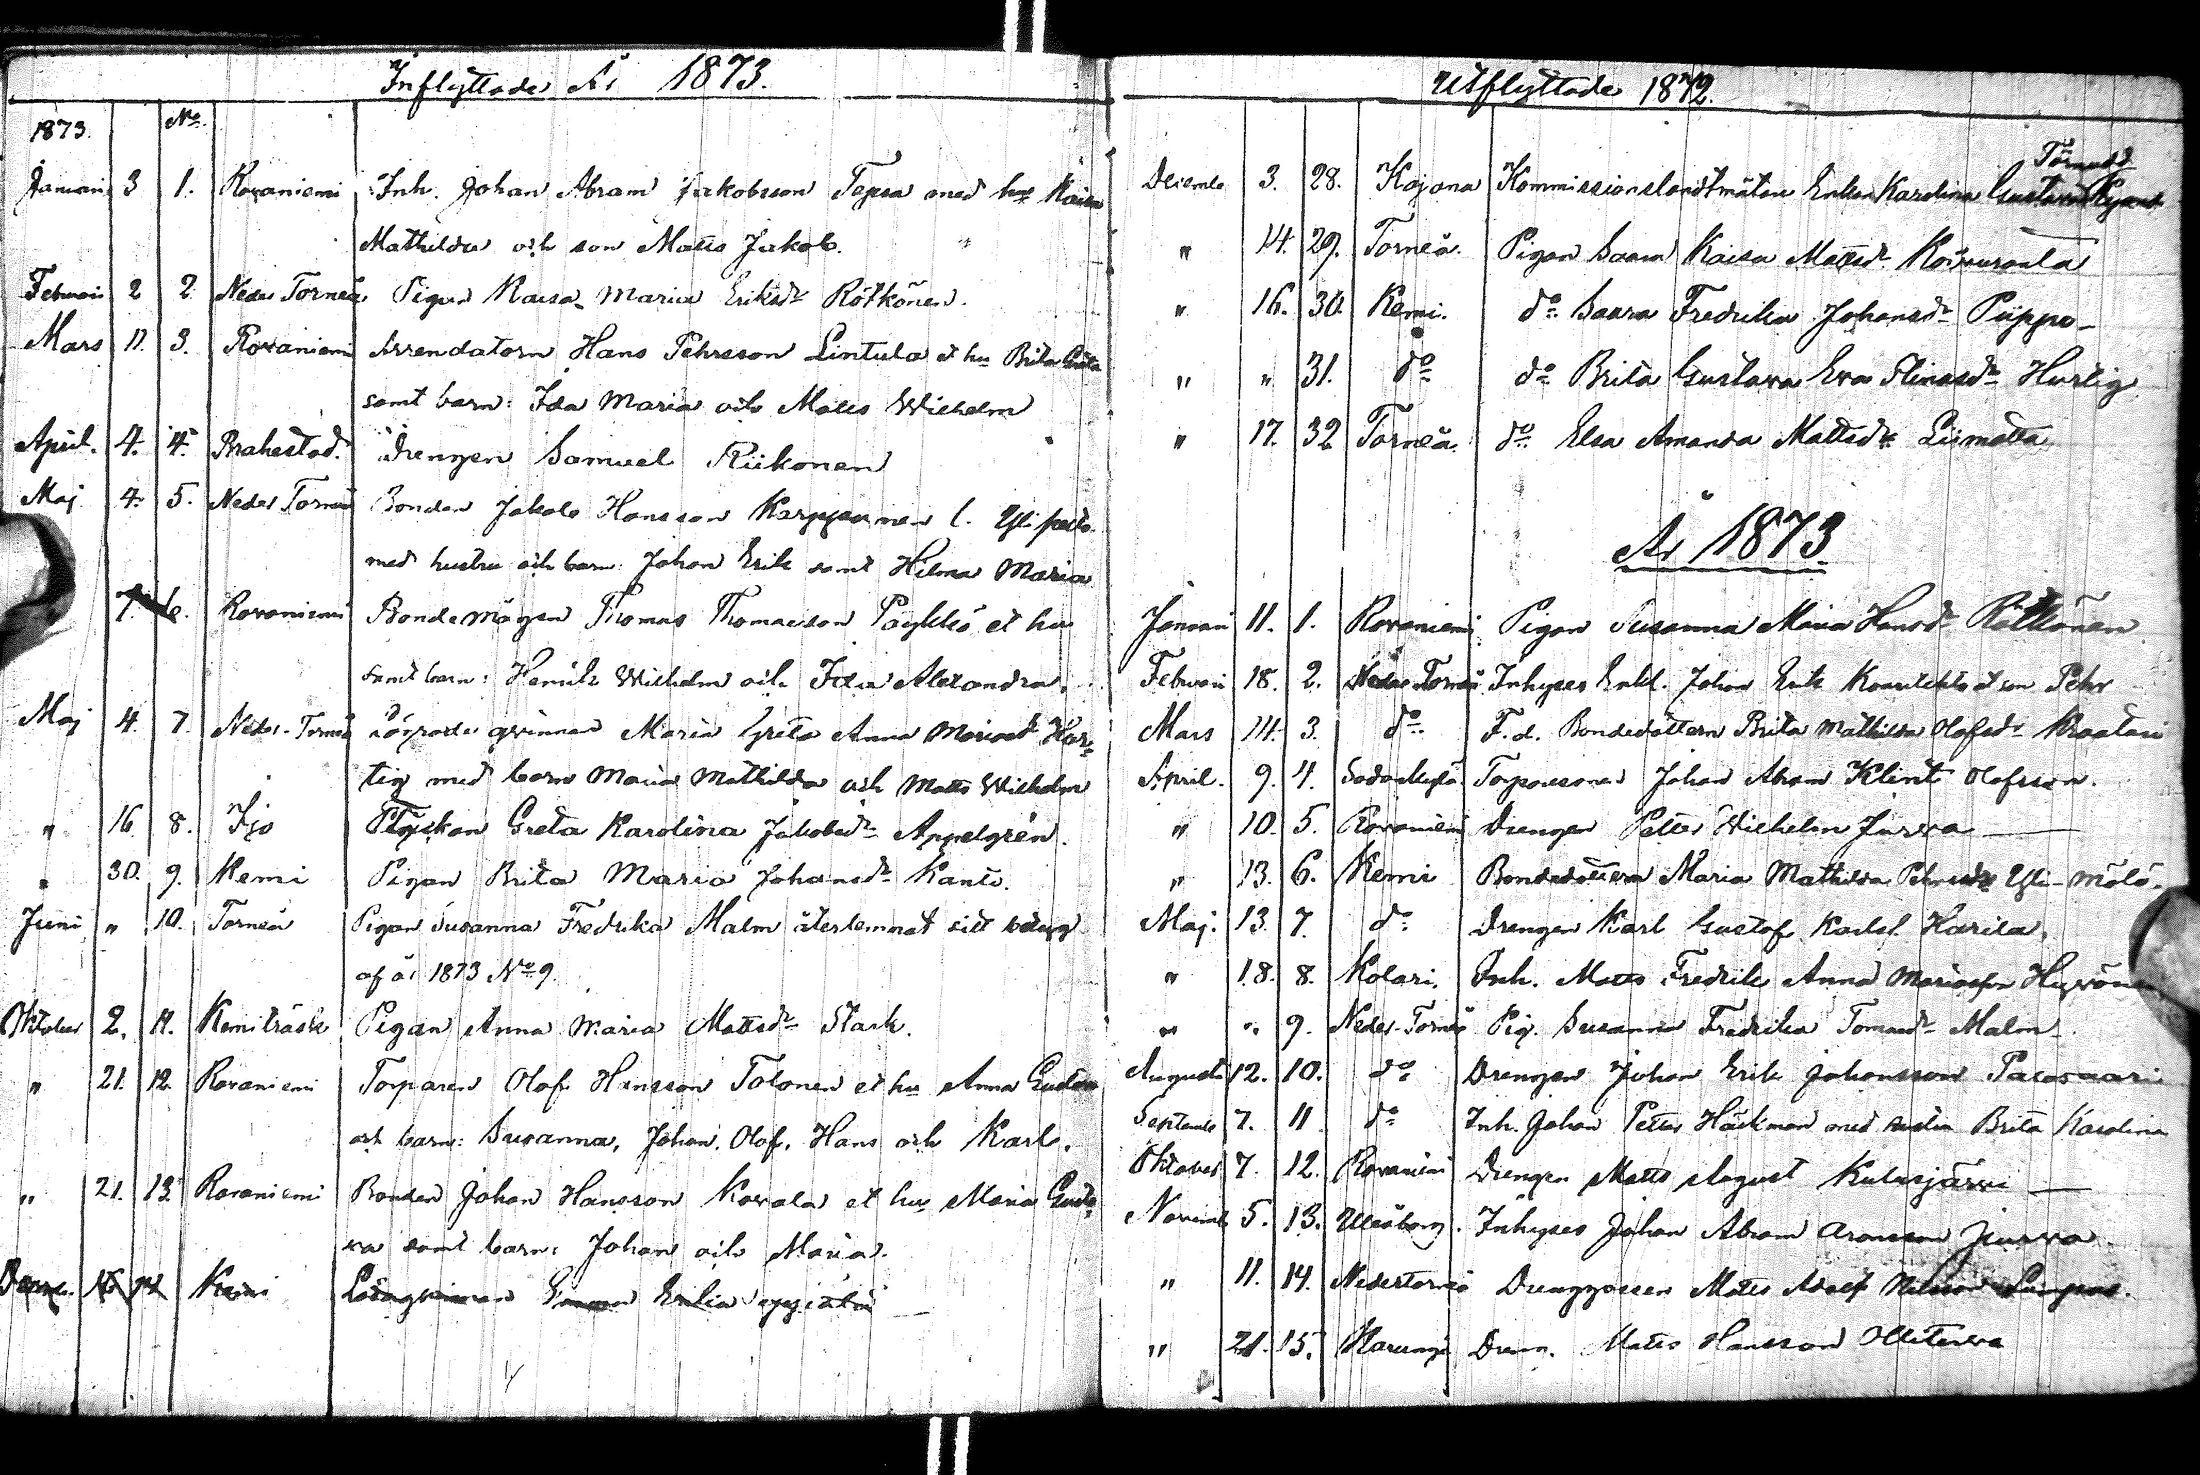 Inflyttade År 1873.
1873. No.
Januari 3 1. Rovaniemi Inh. Johan Abram Jakobsson Tepsa med hu Kaisa
Mathilda och son Matts Jakob.
Februari 2 2 Neder Torneå Pigan Kaisa Maria Eriksdr Rötkönen.
Mars 11. 3. Rovaniemi Arrendatorn Hans Pehrsson Lintula et hu Brita Greta
samt barn: Ida Maria och Matts Wilhelm
April. 4. 4. Brahestad. Drengen Samuel Riikonen
Maj 4. 5. Neder Torneå Bonden Jakob Hansson Karppinen l.
med hustru och barn: Johan Erik samt Hilma Maria
7. 6. Rovaniemi Bondemågen Thomas Thomasson Pöykkö et hu
samt barn: Henrik Wilhelm och Ida Alexandra.
Maj 4. 7. Neder-Torneå qvinnan Maria Greta Anna Mariasdr Hur-
tig med barn Maria Mathilda och Matts Wilhelm
" 16. 8. Ijo Greta Karolina Jakobsdr Appelgrén.
" 30. 9. Kemi Pigan Brita Maria Johansdr Kanto.
Juni " 10. Torneå Pigan Susanna Fredrika Malm återlemnat sitt betyg
af år 1873 No 9.
Oktober 2. 11. Kemiträsk Pigan Anna Maria Mattsdr Stark.
" 21. 12. Rovaniemi Torparen Olof Hansson Tolonen et hu Anna Gustava
och barn: Susanna, Johan, Olof, Hans och Karl.
" 21. 13. Rovaniemi Bonden Johan Hansson Kovala et hu Maria Gusta-
va samt barn: Johan och Maria.
Kemi
Utflyttade 1872.
Törnudd
Decemb. 3. 28. Kajana Kommissionslandtmätare Enkan Karolina Gustava
" 14. 29. Torneå. Pigan Saara Kaisa Mattsdr Koivuranta
" 16. 30. Kemi. do Saara Fredrika Johansdr Piippo
" " 31. do do Brita Gustava Eva Stinasdr Hurtig
" 17. 32 Torneå do Elsa Amanda Mattsdr Liimatta
År 1873.
Januari 11. 1. Rovaniemi Pigan Susanna Maria Hansdr Rötkönen
Februari 18. 2. Neder Torneå Inhyses Enkl. Johan Erik et son Pehr
Mars 14. 3. do F.d. Bondedottern Brita Mathilda Olofsdr Kraatari
April. 9. 4. Sodankylä Torparesonen Johan Abram Klint Olofsson.
" 10. 5. Rovaniemi Drengen Petter Wilhelm Jurva
" 13. 6. Kemi Bondedottern Maria Mathilda Pehrsdr Yli-Mölö.
Maj. 13. 7. do Drengen Karl Gustaf Karlsl. Harila.
" 18. 8. Kolari. Inh. Matts Fredrik Anna Mariason
" " 9. Neder-Torneå Pig. Susanna Fredrika Tomasdr Malm
Augusti 12. 10. do Drengen Johan Erik Johansson
Septemb 7. 11 do Inh. Johan Petter Häckman med hustru Brita Karolina
Oktober 7. 12. Rovaniemi Drengen Matts August Kulusjärvi
Novemb. 5. 13. Uleåborg. Inhyses Johan Abram Aronsson Juurva
" 11. 14. Nedertorneå Drenggossen Matts Adolf Nilsson
" 21. 15. Karungi Dreng. Matts Hansson